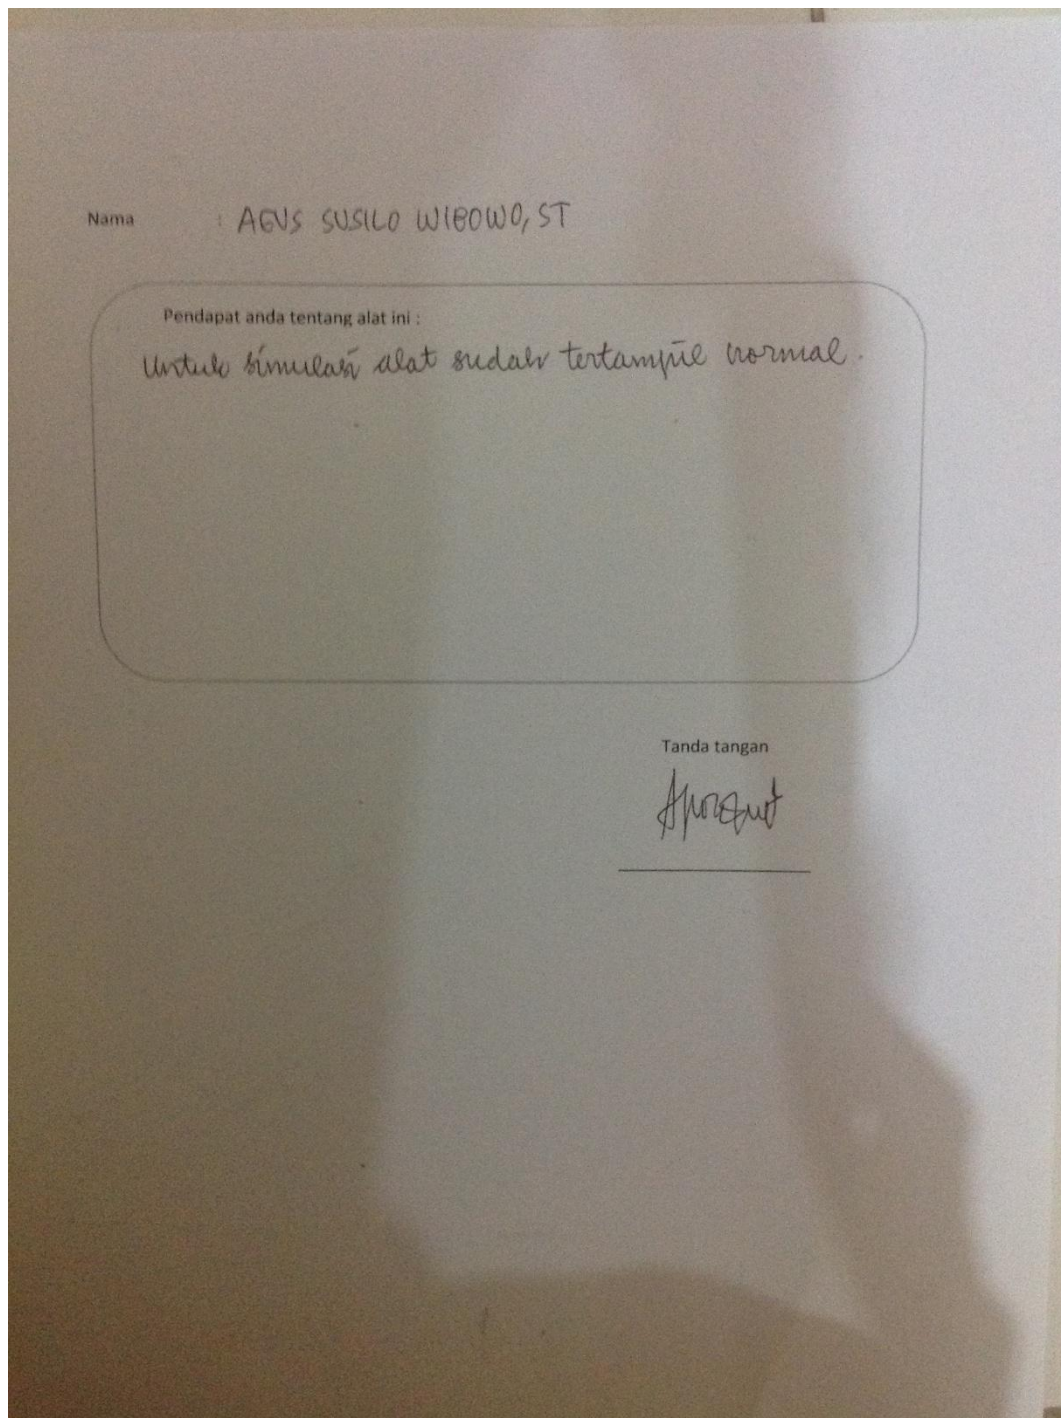 Nama : AGUS SUSILO WIBOWO, ST
Pendapat anda tentang alat ini :
Untuk simulasi alat sudah tertampil normal.
Tanda tangan